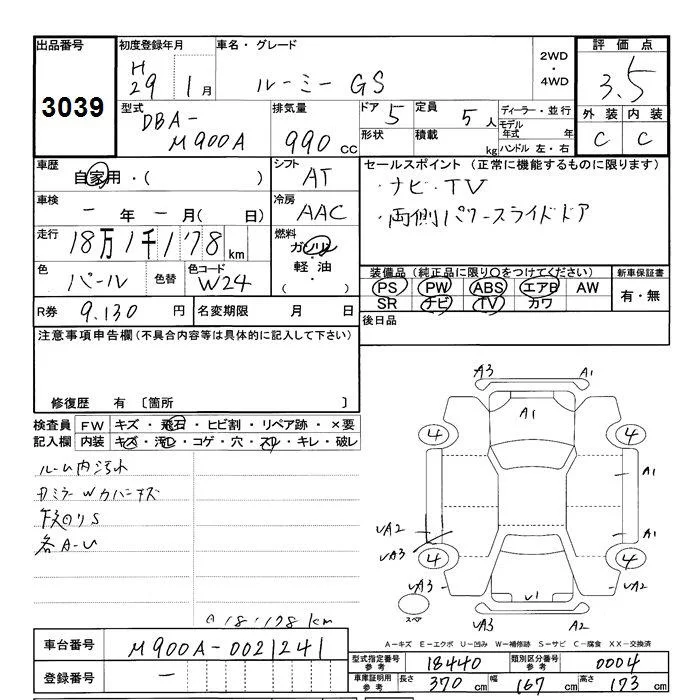 出品番号 初度登録年月 車名・グレード 2WD・4WD 評価点
3039 H29 1月 ルーミー GS 3.5
型式 排気量 ドア 5 定員 5人 ディーラー・並行 外装 内装
DBA-M900A 990cc 形状 積載 kg モデル年式 年 C C
ハンドル 左・右
車歴 シフト セールスポイント(正常に機能するものに限ります)
自家用・( ) AT ・ナビ・TV
車検 冷房 ・両側パワースライドドア
ー年ー月( 日) AAC
走行 燃料
18万1千178km ガソリン
軽油・( )
色 色替 色コード 装備品(純正品に限り○をつけてください) 新車保証書
パール W24 PS PW ABS エアB AW 有・無
SR ナビ TV カワ
R券 9.130円 名変期限 月 日 後日品
注意事項申告欄(不具合内容等は具体的に記入して下さい)
修復歴 有 〔箇所 〕
検査員 FW キズ・飛石・ヒビ割・リペア跡・×要
記入欄 内装 キズ・汚レ・コゲ・穴・スレ・キレ・破レ
ルーム内汚れ
各A-U
A3 A1
A1
4 4
A1
UA2 A1
UA3
4 4
UA3 U1 UA2
スペア UA3 A2
181.178km
A-キズ E-エクボ U-凹み W-補修跡 S-サビ C-腐食 XX-交換済
車台番号 M900A-0021241
型式指定番号参考 18440 類別区分番号参考 0004
登録番号 ー
車庫証明用参考 長さ 370cm 幅 167cm 高さ 173cm